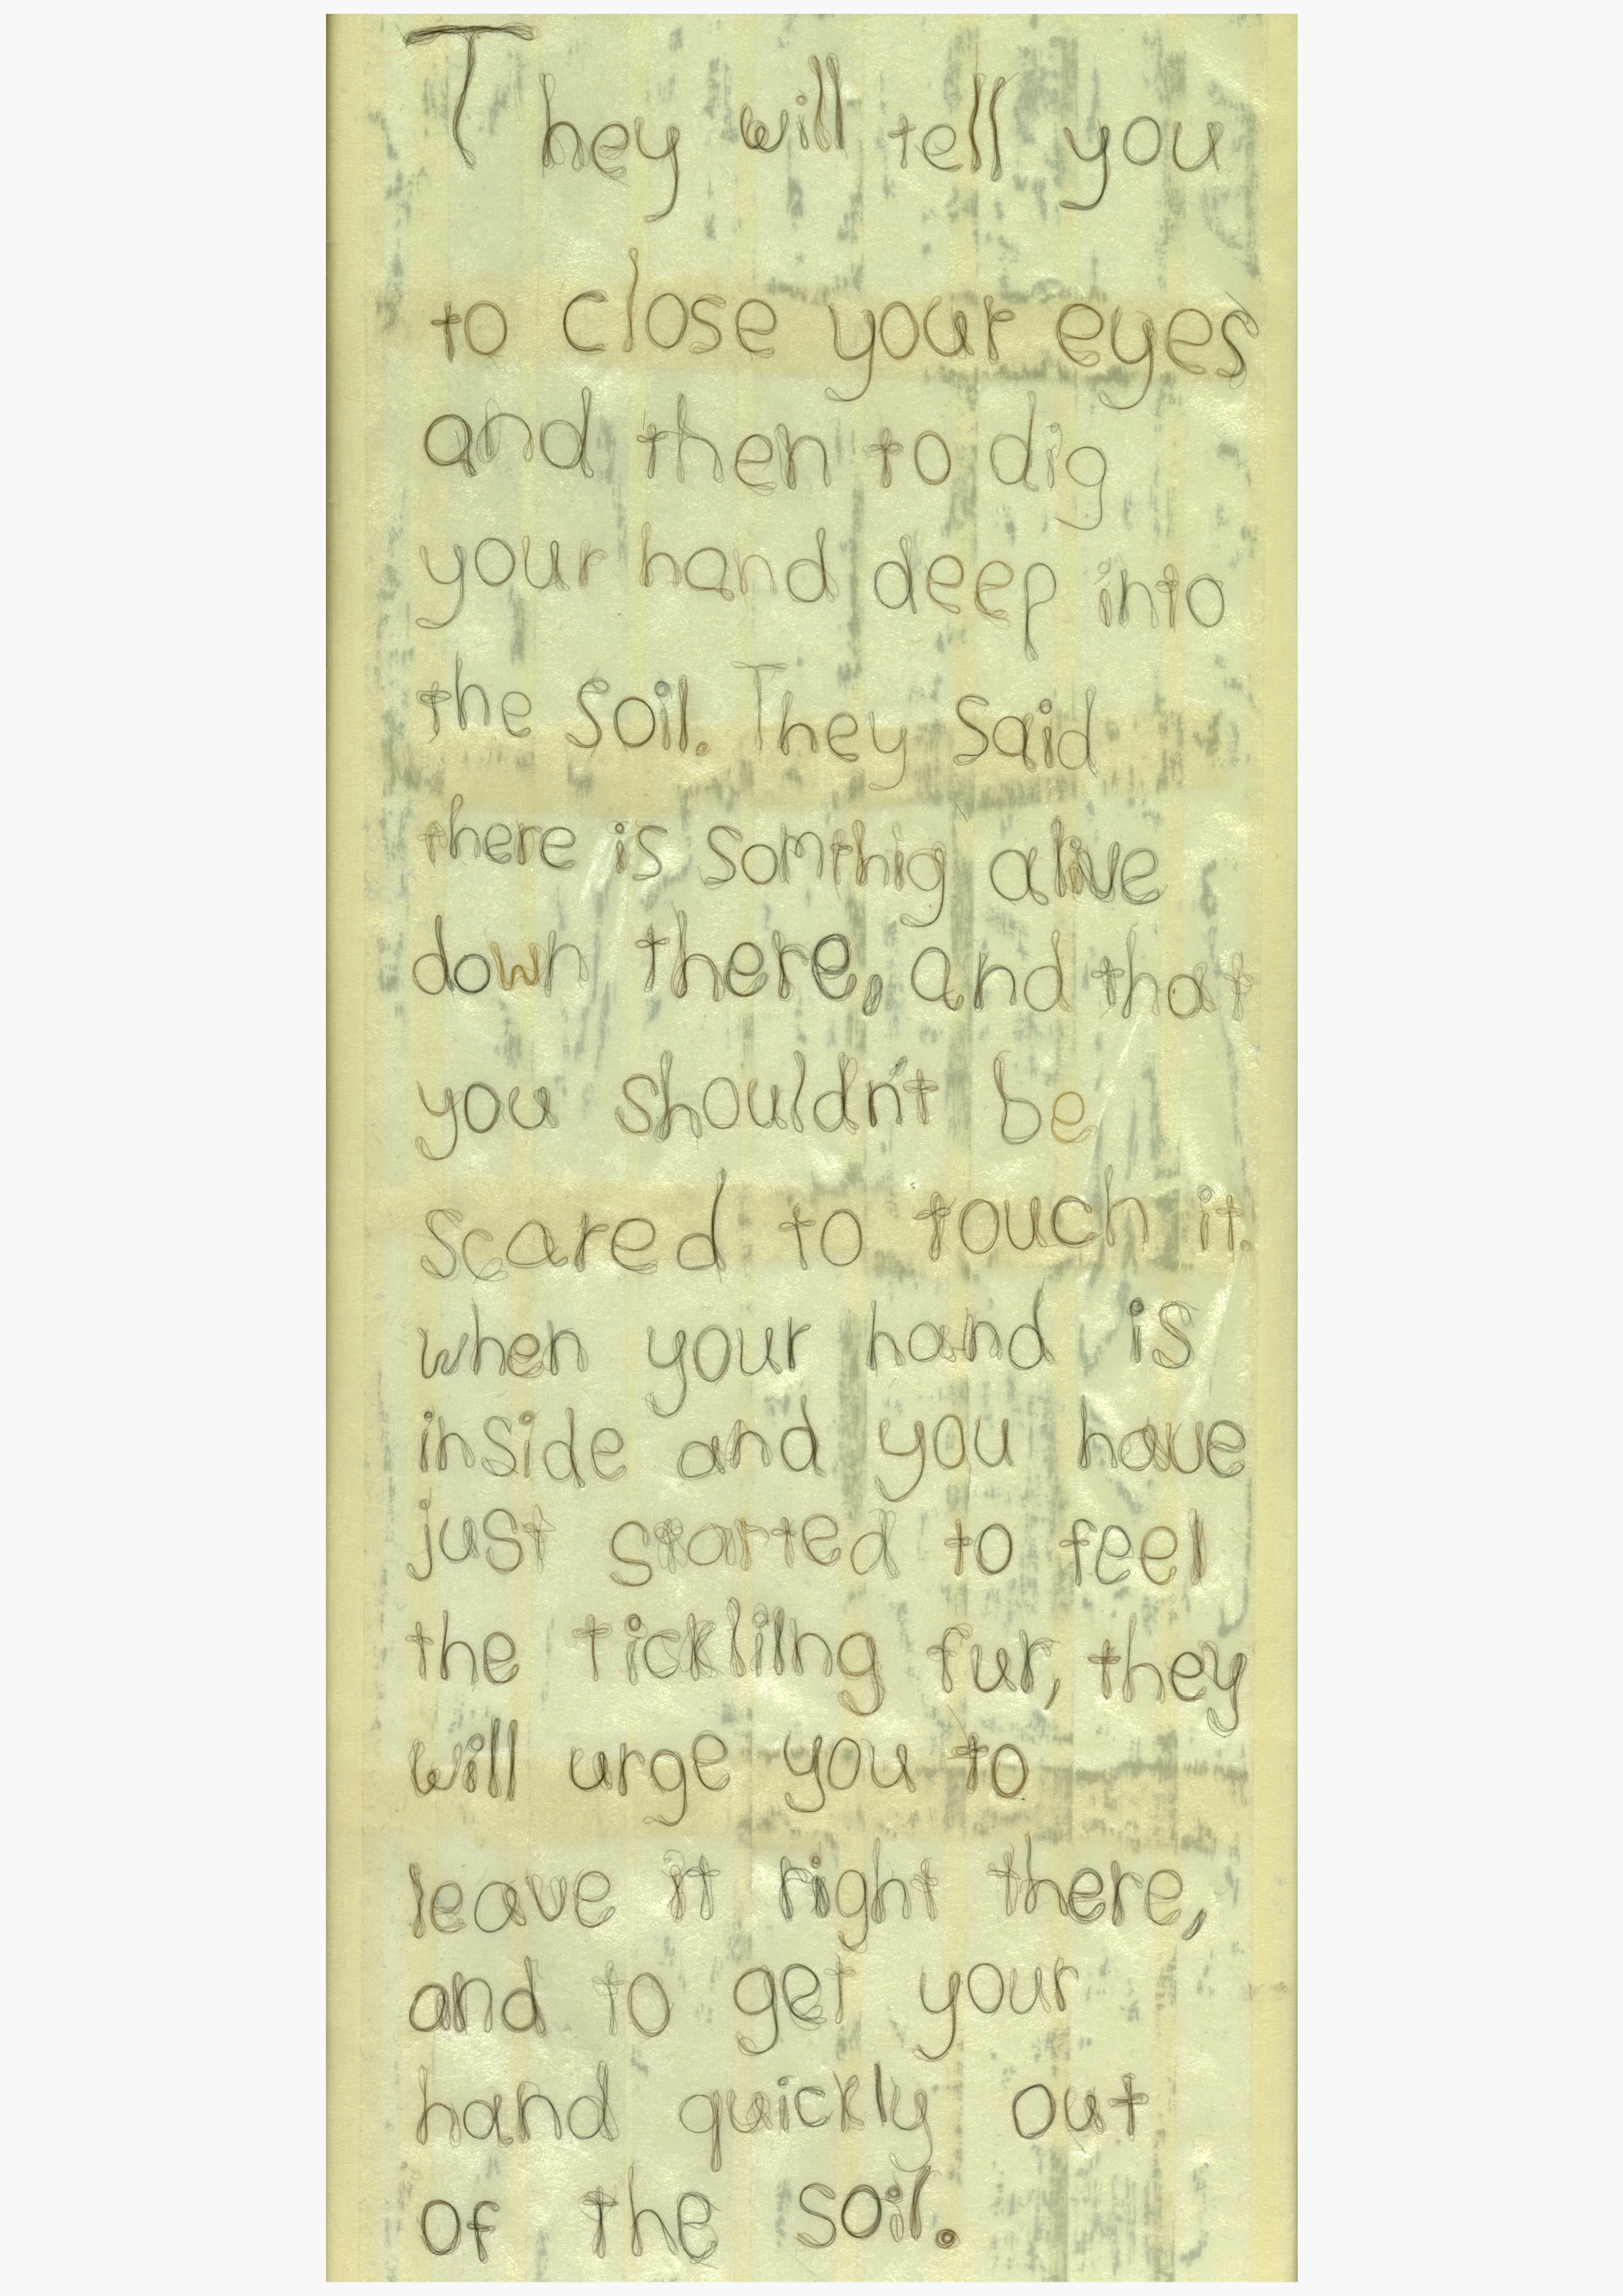 They will tell you
to close your eyes
and then to dig
your hand deep into
the soil. They said
there is somthig alive
down there, and that
you shouldn't be
scared to touch it.
when your hand is
inside and you have
just started to feel
the ticklilng fur, they
will urge you to
leave it right there,
and to get your
hand quickly out
of the soil.